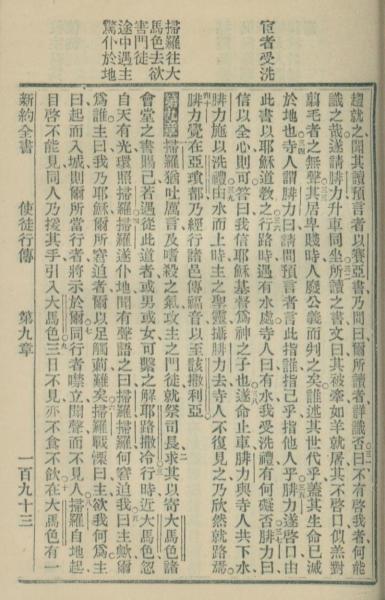 宦者受洗
趨就之聞其讀預言者以賽亞書乃問曰爾所讀者詳識否曰不有啓我者何能
識之哉遂請腓力升車同坐所讀之書文曰其被牽如羊就屠其不啓口似羔對
翦毛者之無聲其居卑賤時人廢公義而判之矣誰述其世代乎蓋其生命已滅
於地也寺人謂腓力曰請問預言者言此指誰指己乎指他人乎腓力遂啓口由
此書以耶穌道教之行路時遇有水處寺人曰有水我受洗禮有何礙否腓力曰
信以全心則可答曰我信耶穌基督爲神之子也遂命止車腓力與寺人共下水
腓力施以洗禮由水而上時主之聖靈攝腓力去寺人不復見之乃欣然就路焉
腓力覺在亞瑣都乃經行諸邑傳福音以至該撒利亞
掃羅往大
馬色去欲
害門徒
途中遇主
驚仆於地
第九章掃羅猶吐厲言及嗜殺之氣攻主之門徒就祭司長求其以寄大馬色諸
會堂之書賜己若遇從此道者或男或女可繫之解耶路撒冷行時近大馬色忽
自天有光環照掃羅掃羅遂仆地聞有聲語之曰掃羅掃羅何窘迫我曰主歟爾
爲誰主曰我乃耶穌爾所窘迫者爾以足觸刺難矣掃羅戰慄曰主欲我何爲主
曰起而入城則爾所當行者將示於爾同行者嘿立聞聲而不見人掃羅自地起
目啓不能見同人乃援其手引入大馬色三日不見亦不食不飲在大馬色有一
新約全書 使徒行傳 第九章 一百九十三